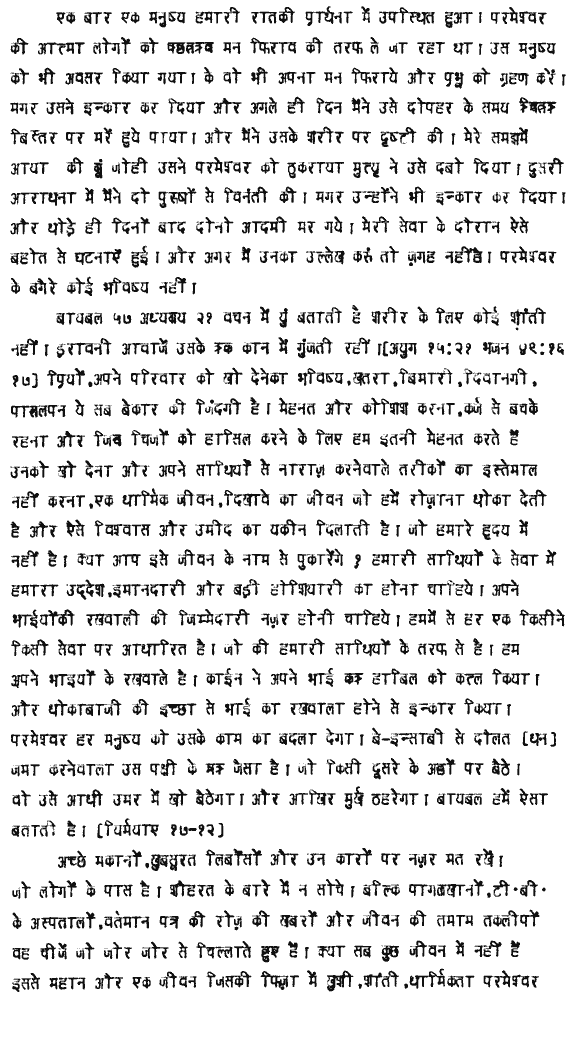 एक बार एक मनुष्य हमारी रातकी प्रार्थना में उपस्थित हुआ। परमेश्वर
की आत्मा लोगों को मन फिराव की तरफ ले जा रहा था। उस मनुष्य
को भी अवसर किया गया। के वो भी अपना मन फिराये और प्रभू को ग्रहण करें।
मगर उसने इन्कार कर दिया और अगले ही दिन मैंने उसे दोपहर के समय
बिस्तर पर मरें हुये पाया। और मैंने उसके शरीर पर दृष्टी की। मेरे समझमें
आया की यूं जोही उसने परमेश्वर को ठुकराया मृत्यू ने उसे दबो दिया। दुसरी
आराधना में मैंने दो पुरूषों से विनंती की। मगर उन्होंने भी इन्कार कर दिया।
और थोड़े ही दिनों बाद दोनो आदमी मर गये। मेरी सेवा के दौरान ऐसे
बहोत से घटनाऐं हुई। और अगर में उनका उल्लेख करूं तो जगह नहीं है। परमेश्वर
के बगैरे कोई भविष्य नहीं।
बायबल ५७ अध्याय २१ वचन में युं बताती है शरीर के लिए कोई शांती
नहीं। डरावनी आवाजें उसके कान में गुंजती रहीं। [अयुग १५:२१ भजन ४९:१६
१७] प्रियों, अपने परिवार को खो देनेका भविष्य, खतरा, बिमारी, दिवानगी,
पागलपन ये सब बेकार की जिंदगी है। मेहनत और कोशिश करना, कर्ज से बचके
रहना और जिन चिजों को हासिल करने के लिए हम इतनी मेहनत करते हैं
उनको खो देना और अपने साथियों से नाराज़ करनेवाले तरीकों का इस्तेमाल
नहीं करना, एक धार्मिक जीवन, दिखावे का जीवन जो हमें रोज़ाना धोका देती
है और ऐसे विश्वास और उमीद का यकीन दिलाती है। जो हमारे हृदय में
नहीं है। क्या आप इसे जीवन के नाम से पुकारेंगे ? हमारी साथियों के सेवा में
हमारा उद्देश, इमानदारी और बड़ी होशियारी का होना चाहिये। अपने
भाईयोंकी रखवाली की जिम्मेदारी नज़र होनी चाहिये। हममें से हर एक किसीने
किसी सेवा पर आधारित है। जो की हमारी साथियों के तरफ से है। हम
अपने भाइयों के रखवाले है। काईन ने अपने भाई हाबिल को कत्ल किया।
और धोकाबाजी की इच्छा से भाई का रखवाला होने से इन्कार किया।
परमेश्वर हर मनुष्य को उसके काम का बदला देगा। बे-इन्साबी से दौलत [धन]
जमा करनेवाला उस पक्षी के जैसा है। जो किसी दूसरे के अंडों पर बैठे।
वो उसे आधी उमर में खो बैठेगा। और आखिर मुर्ख ठहरेगा। बायबल हमें ऐसा
बताती है। [यिर्मयाए १७-१२]
अच्छे मकानों, खुबसुरत लिबाँसों और उन कारों पर नज़र मत रखें।
जो लोगों के पास है। शौहरत के बारे में न सोचे। बल्कि पागलखानों, टी.बी.
के अस्पतालों, वर्तमान पत्र की रोज़ की खबरों और जीवन की तमाम तकलीपों
वह चीजें जो जोर जोर से चिल्लाते हुए हैं। क्या सब कुछ जीवन में नहीं हैं
इससे महान और एक जीवन जिसकी फिज़ा में खुशी, शांती, धार्मिकता परमेश्वर